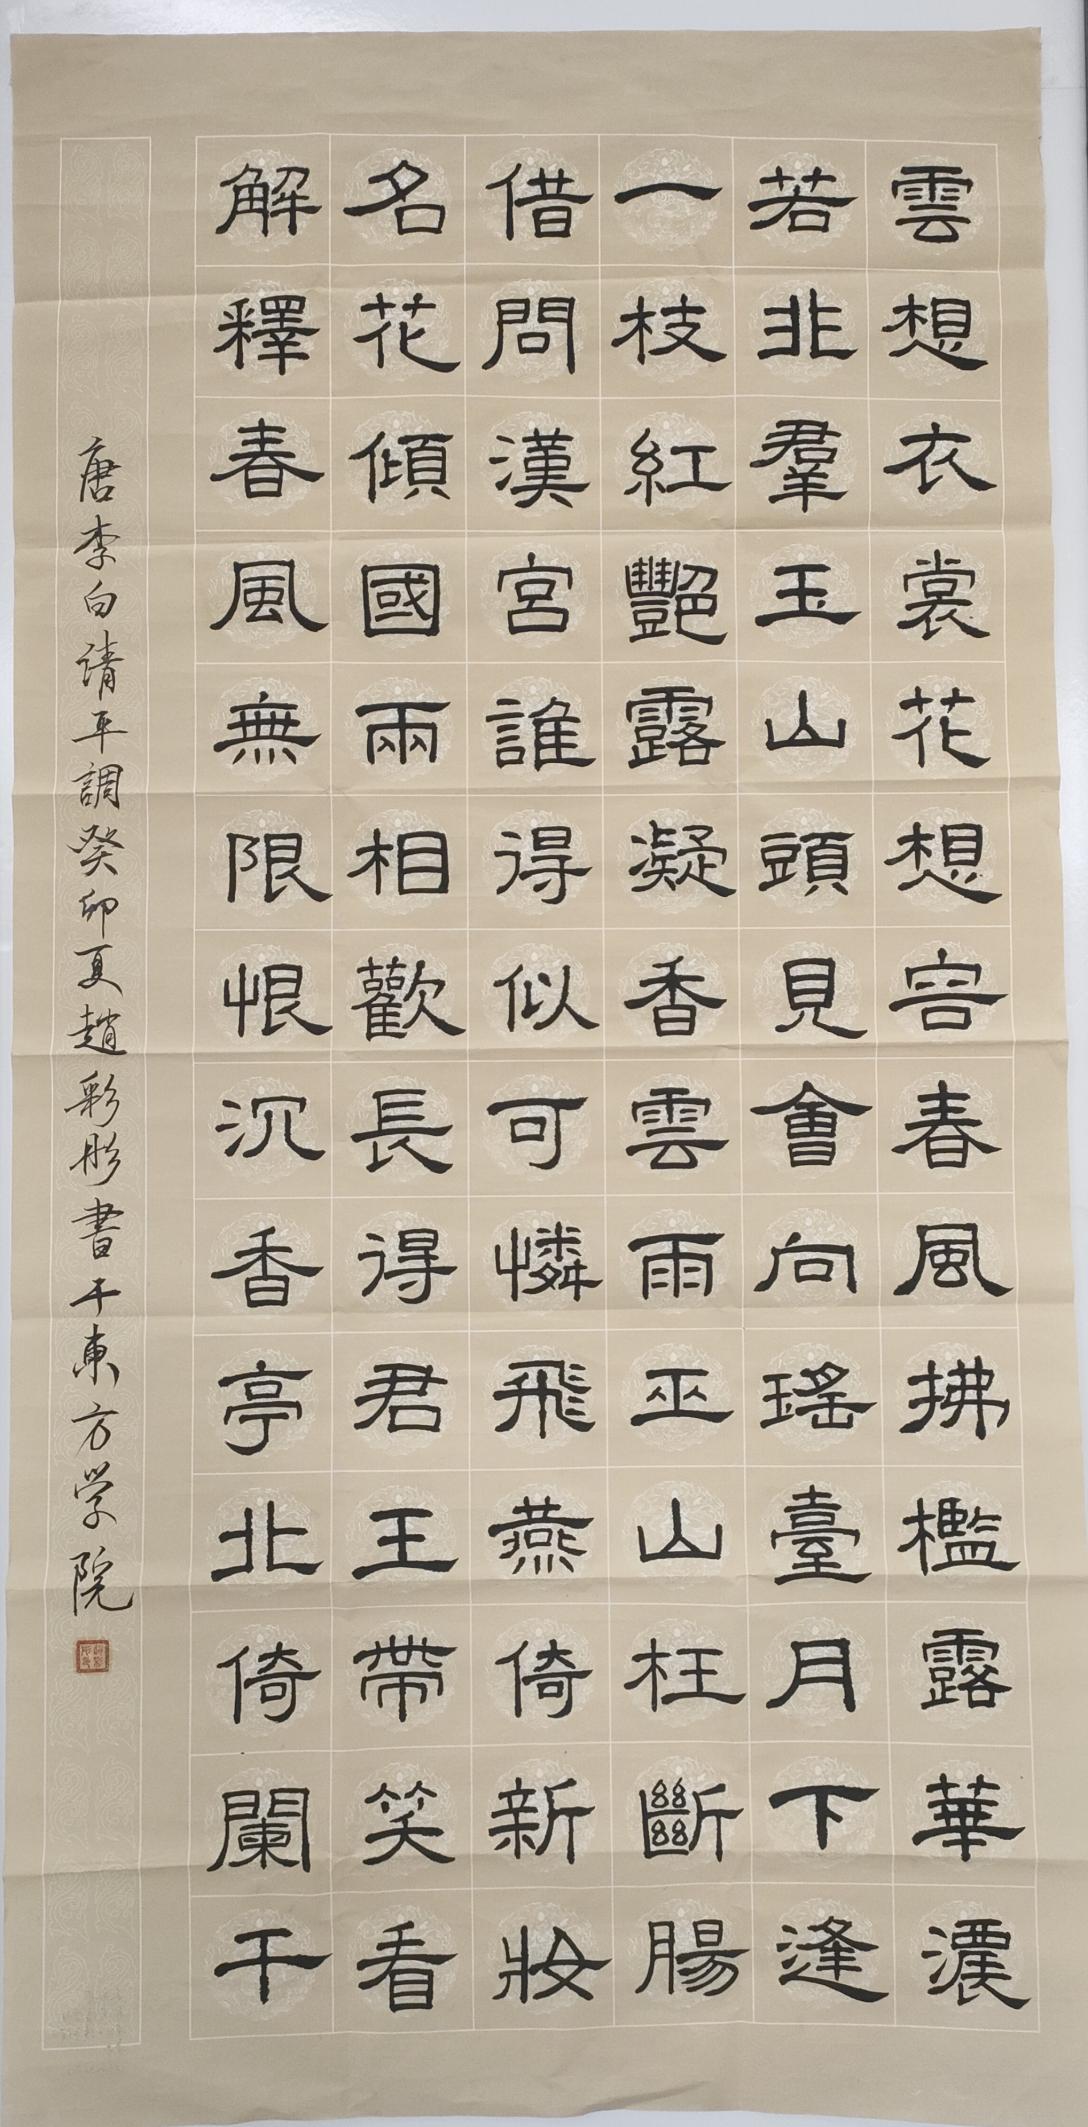 雲想衣裳花想容春風拂檻露華濃
若非羣玉山頭見會向瑤臺月下逢
一枝紅艷露凝香雲雨巫山枉斷腸
借問漢宮誰得似可憐飛燕倚新妝
名花傾國兩相歡長得君王帶笑看
解釋春風無限恨沉香亭北倚闌干
唐李白清平調癸卯夏趙彩彤書于東方学院